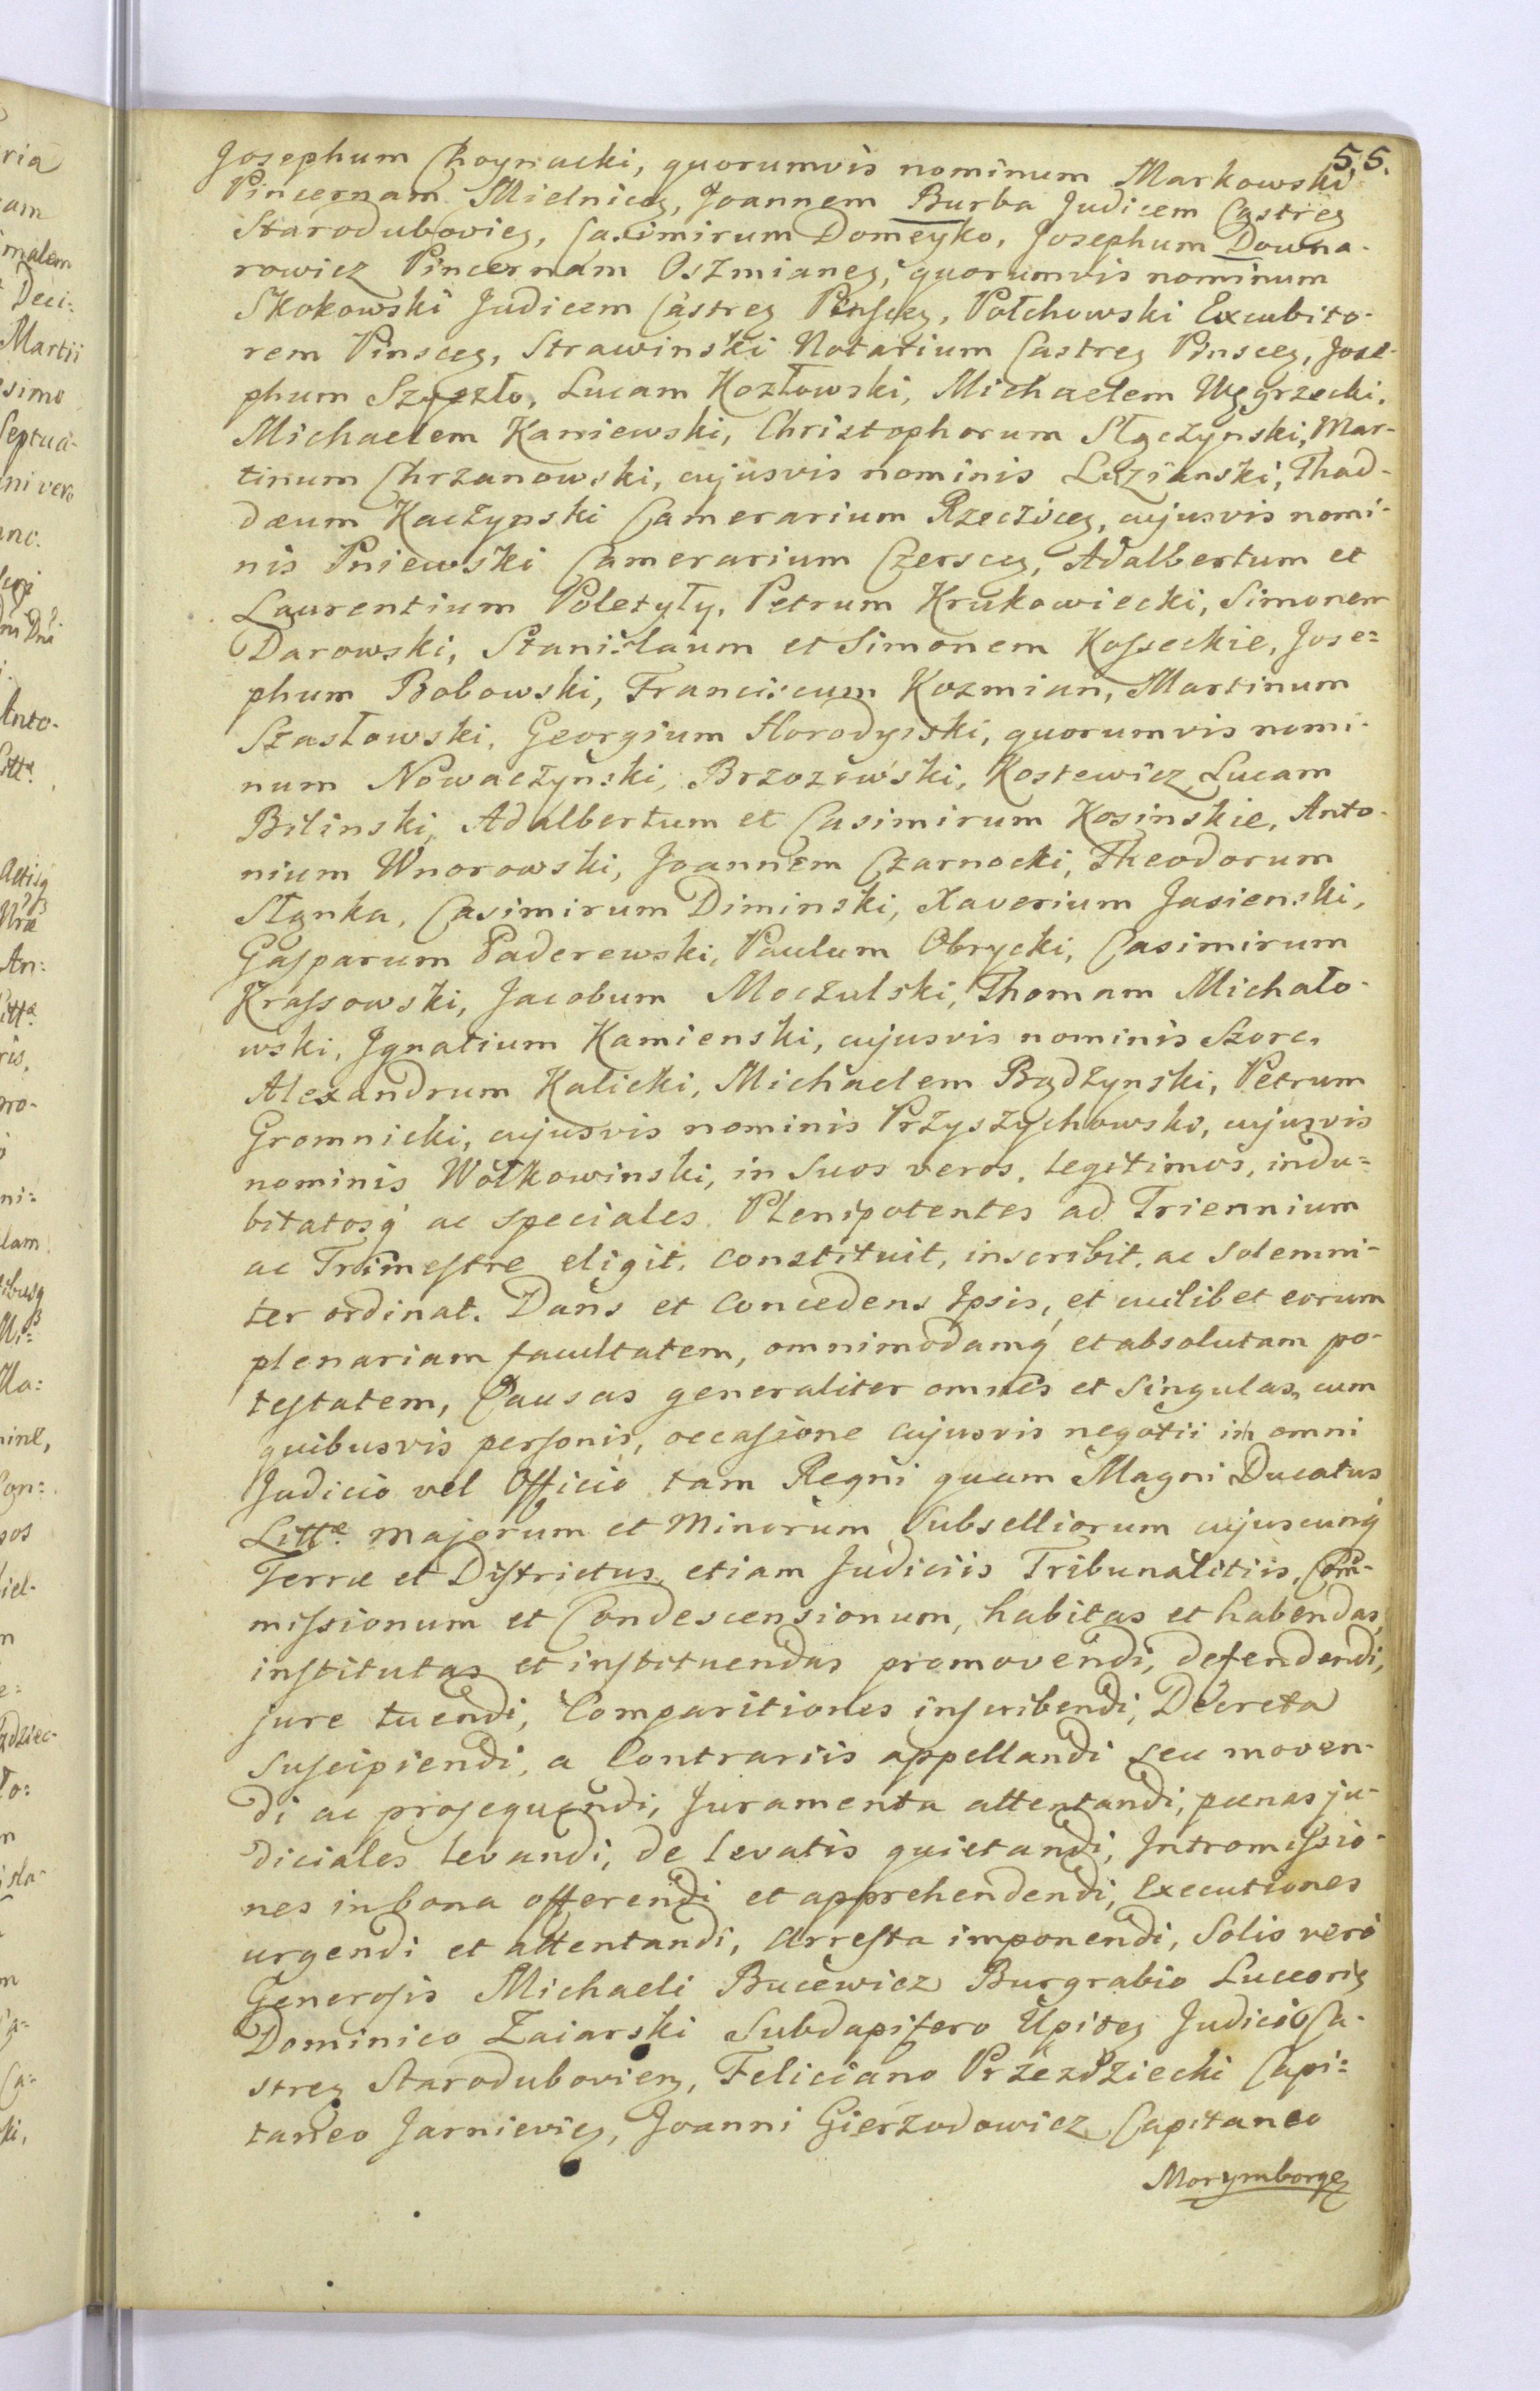 55.
Josephum Choynacki, quorumvis nominum Markowski
Pincernam Mielnicen, Joannem Burba Judicem Castren
Starodubovien, Casimirum Domeyko, Josephum Downa-
rowicz Pincernam Oszmianen, quorumvis nominum
Skokowski Judicem Castren Pinscen, Połchowski Excubito-
rem Pinscen, Strawinski Notarium Castren Pinscen, Jose-
phum Szyszło, Lucam Kozłowski, Michaelem Węgrzecki,
Michaelem Kaniewski, Christophorum Stączynski, Mar-
tinum Chrzanowski, cujusvis nominis Łużianski, Thad-
dæum Kaczynski Camerarium Rzeczicen, cujusvis nomi-
nis Pniewski Camerarium Czerscen, Adalbertum et
Laurentium Poletyły, Petrum Krukowiecki, Simonem
Darowski, Stanislaum et Simonem Kosseckie, Jose=
phum Bobowski, Franciscum Kozmian, Martinum
Szasłowski, Georgium Horodyski, quorumvis nomi-
num Nowaczyński, Brzozowski, Kostewicz, Lucam
Bilinski, Adalbertum et Casimirum Kosinskie, Anto-
nium Wnorowski, Joannem Czarnocki, Theodorum
Stanka, Casimirum Diminski, Xaverium Jasienski,
Gasparum Paderewski, Paulum Obrycki, Casimirum
Krassowski, Jacobum Moczulski, Thomam Michało-
wski, Ignatium Kamienski, cujusvis nominis Szorc,
Alexandrum Kalicki, Michaelem Bądzynski, Petrum
Gromnicki, cujusvis nominis Przyszychowski, cujusvis
nominis Wołkowinski, in Suos veros, legitimos, indu=
bitatosq́ ac speciales Plenipotentes ad Triennium
ac Trimestre eligit, constituit, inscribit, ac Solemni-
ter ordinat. Dans et Concedens Ipsis, et cuilibet eorum
plenariam facultatem, omnimodamq́ et absolutam po-
testatem, Causas generaliter omnes et Singulas, cum
quibusvis personis, occasione cujusvis negotii in omni
Judicio vel Officio tam Regni quam Magni Ducatus
Littæ majorum et Minorum Subselliorum cujuscunq́
Terræ et Districtus, etiam Judiciis Tribunalitiis, Com-
missionum et Condescensionum, habitas et habendas,
institutas et instituendas promovendi, defendendi,
jure tuendi, Comparitiones inscribendi, Decreta
Suscipiendi, a Contrariis appellandi seu moven-
di ac prosequendi, Juramenta attentandi, pœnas ju-
diciales levandi, de levatis quietandi, Intromissio-
nes in bona offerendi et apprehendendi, Executiones
urgendi et attentandi, Arresta imponendi, Solis vero
Generosis Michaeli Bucewicz Burgrabio Luceorien
Dominico Zaiarski Subdapifero Upiten Judicio Ca-
stren Starodubovien, Feliciano Przezdziecki Capi=
taneo Jarnievien, Joanni Gierzodowicz Capitaneo
Morymborgen